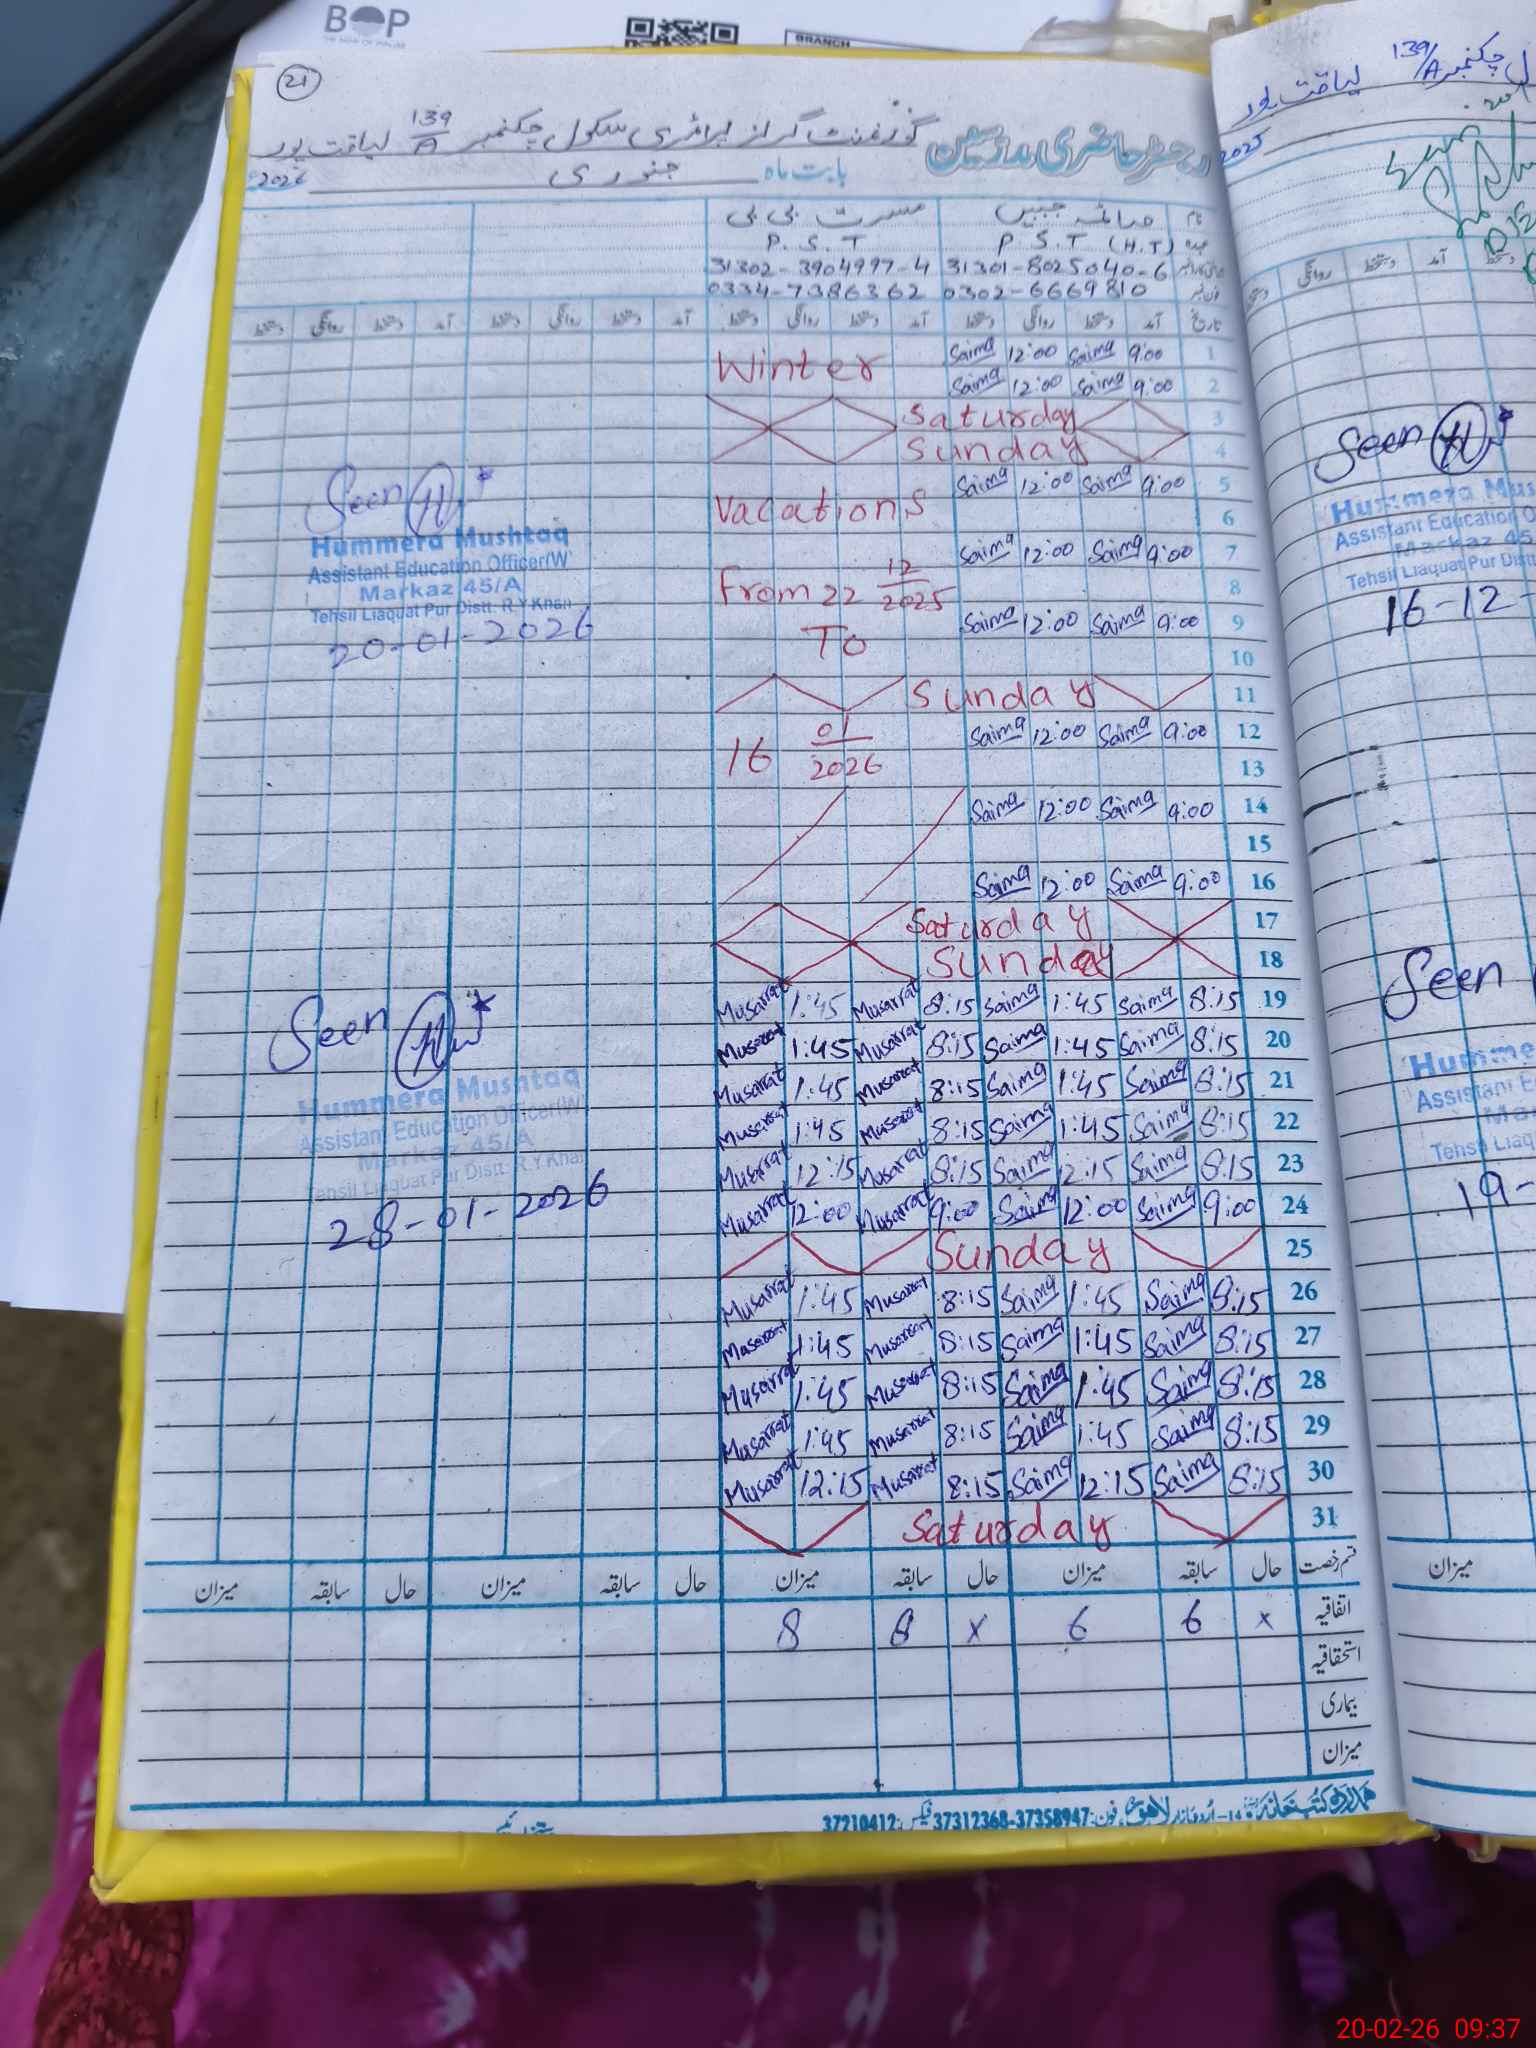 BOP
BRANCH
21
رجسٹر حاضری مدرسین گورنمنٹ گرلز پرائمری سکول چکنمبر 139/A لیاقت پور
بابت ماہ جنوری 2026ء
نام صائمہ جبیں مسرت بی بی
عہدہ P.S.T (H.T) P.S.T
31301-8025040-6 31302-3904997-4
فون نمبر 0302-6669810 0334-7386362
تاریخ آمد دستخط روانگی دستخط آمد دستخط روانگی دستخط آمد دستخط روانگی دستخط آمد دستخط روانگی دستخط
1 9:00 Saima 12:00 Saima
Winter
2 9:00 Saima 12:00 Saima
3 Saturday
4 Sunday
5 9:00 Saima 12:00 Saima
Vacations
6
7 9:00 Saima 12:00 Saima
From 22 12/2025
8
9 9:00 Saima 12:00 Saima
To
10
11 Sunday
12 9:00 Saima 12:00 Saima
16 01/2026
13
14 9:00 Saima 12:00 Saima
15
16 9:00 Saima 12:00 Saima
17 Saturday
18 Sunday
19 8:15 Saima 1:45 Saima 8:15 Musarrat 1:45 Musarrat
20 8:15 Saima 1:45 Saima 8:15 Musarrat 1:45 Musarrat
21 8:15 Saima 1:45 Saima 8:15 Musarrat 1:45 Musarrat
22 8:15 Saima 1:45 Saima 8:15 Musarrat 1:45 Musarrat
23 8:15 Saima 12:15 Saima 8:15 Musarrat 12:15 Musarrat
24 9:00 Saima 12:00 Saima 9:00 Musarrat 12:00 Musarrat
25 Sunday
26 8:15 Saima 1:45 Saima 8:15 Musarrat 1:45 Musarrat
27 8:15 Saima 1:45 Saima 8:15 Musarrat 1:45 Musarrat
28 8:15 Saima 1:45 Saima 8:15 Musarrat 1:45 Musarrat
29 8:15 Saima 1:45 Saima 8:15 Musarrat 1:45 Musarrat
30 8:15 Saima 12:15 Saima 8:15 Musarrat 12:15 Musarrat
31 Saturday
قسم رخصت حال سابقہ میزان حال سابقہ میزان حال سابقہ میزان حال سابقہ میزان
اتفاقیہ x 6 6 x 8 8
استحقاقیہ
بیماری
میزان
لاہور فون: 37358947-37312368 فیکس: 37210412
Seen
Hummera Mushtaq
Assistant Education Officer(W)
Markaz 45/A
Tehsil Liaquat Pur Distt: R.Y.Khan
20-01-2026
Seen
Hummera Mushtaq
Assistant Education Officer(W)
Markaz 45/A
Tehsil Liaquat Pur Distt: R.Y.Khan
28-01-2026
چکنمبر 139/A لیاقت پور
2025
روانگی دستخط آمد دستخط
Seen
Hummera Mus
Assistant Education O
Markaz 45
Tehsil Liaquat Pur Distt
16-12-
Seen
Humme
Assistant E
Ma
Tehsil Liaq
19-
میزان
20-02-26 09:37